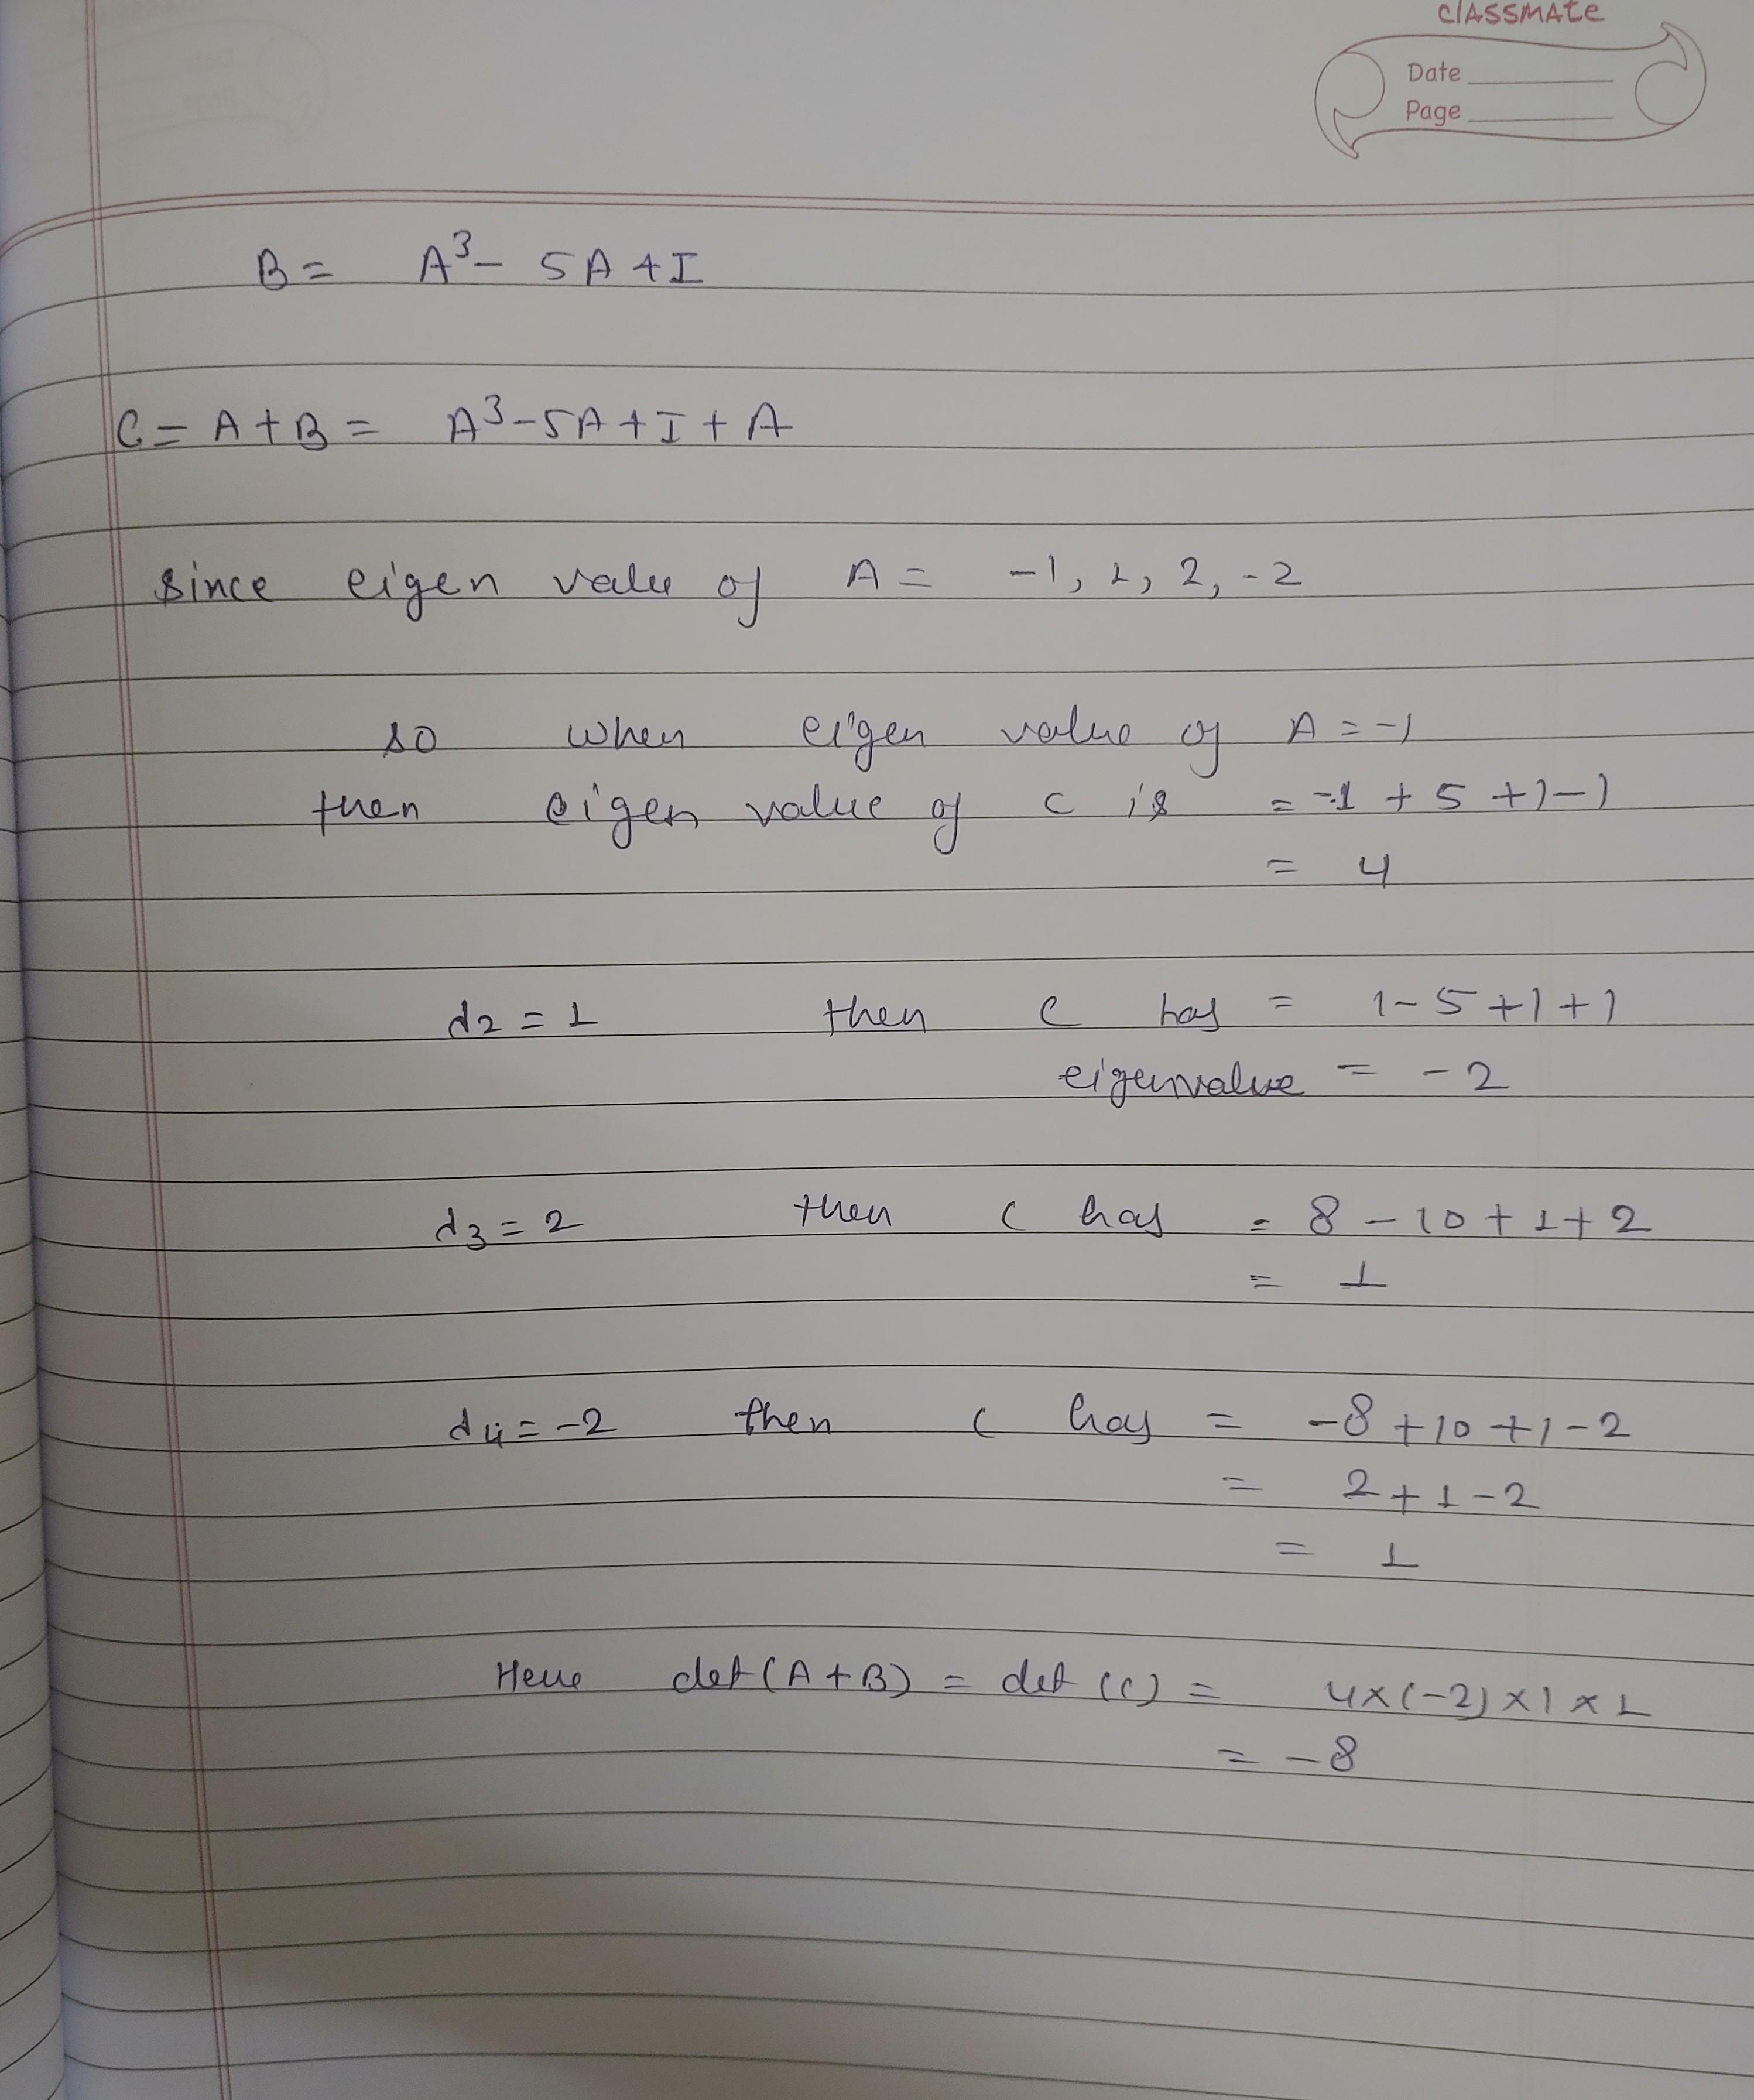 classmate
Date
Page
B = A³ - 5A + I
C = A + B = A³ - 5A + I + A
since eigen value of A = -1, 1, 2, -2
so when eigen value of A = -1
then eigen value of C is = -1 + 5 + 1 - 1
= 4
d2 = 1 then C has = 1 - 5 + 1 + 1
eigenvalue = -2
d3 = 2 then C has = 8 - 10 + 1 + 2
= 1
d4 = -2 then C has = -8 + 10 + 1 - 2
= 2 + 1 - 2
= 1
Here det(A + B) = det (C) = 4 × (-2) × 1 × 1
= -8